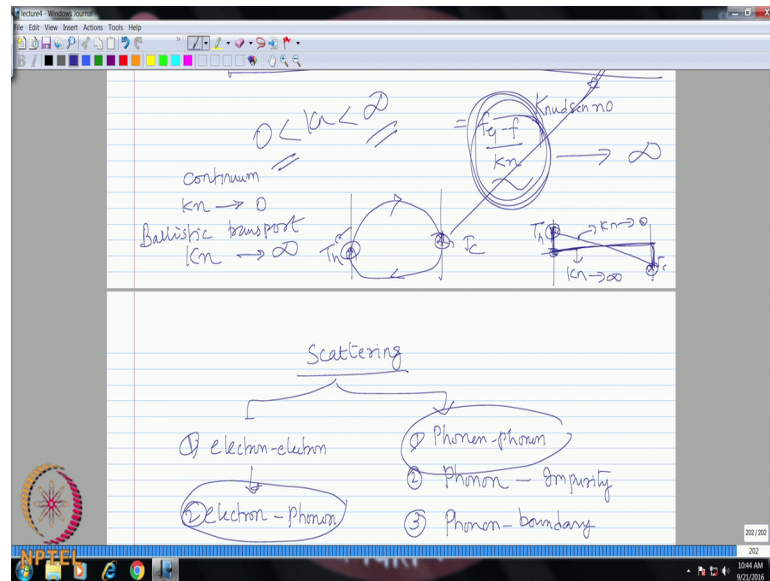 lecture4 - Windows Journal
File Edit View Insert Actions Tools Help
0 < Kn < ∞
= feq - f / Kn → ∞
Knudsen no
continuum
Kn → 0
Ballistic transport
Kn → ∞
Th
Tc
Th
Kn → 0
Kn → ∞
Tc
Scattering
① electron-electron
② electron - Phonon
① Phonon-phonon
② Phonon - Impurity
③ Phonon - boundary
202 / 202
202
NPTEL
10:44 AM
9/21/2016